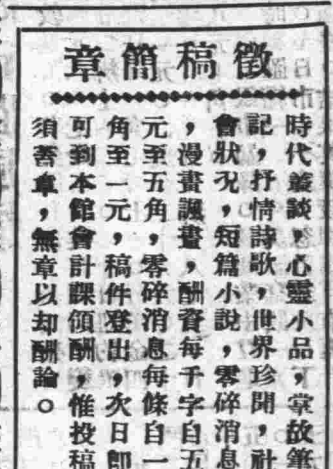 徵稿簡章
時代叢談，心靈小品，掌故筆
記，抒情詩歌，世界珍聞，社
會狀況，短篇小說，零碎消息
，漫畫諷畫，酬資每千字自五
元至五角，零碎消息每條自一
角至一元，稿件登出，次日即
可到本館會計課領酬，惟投稿
須蓋章，無章以却酬論。